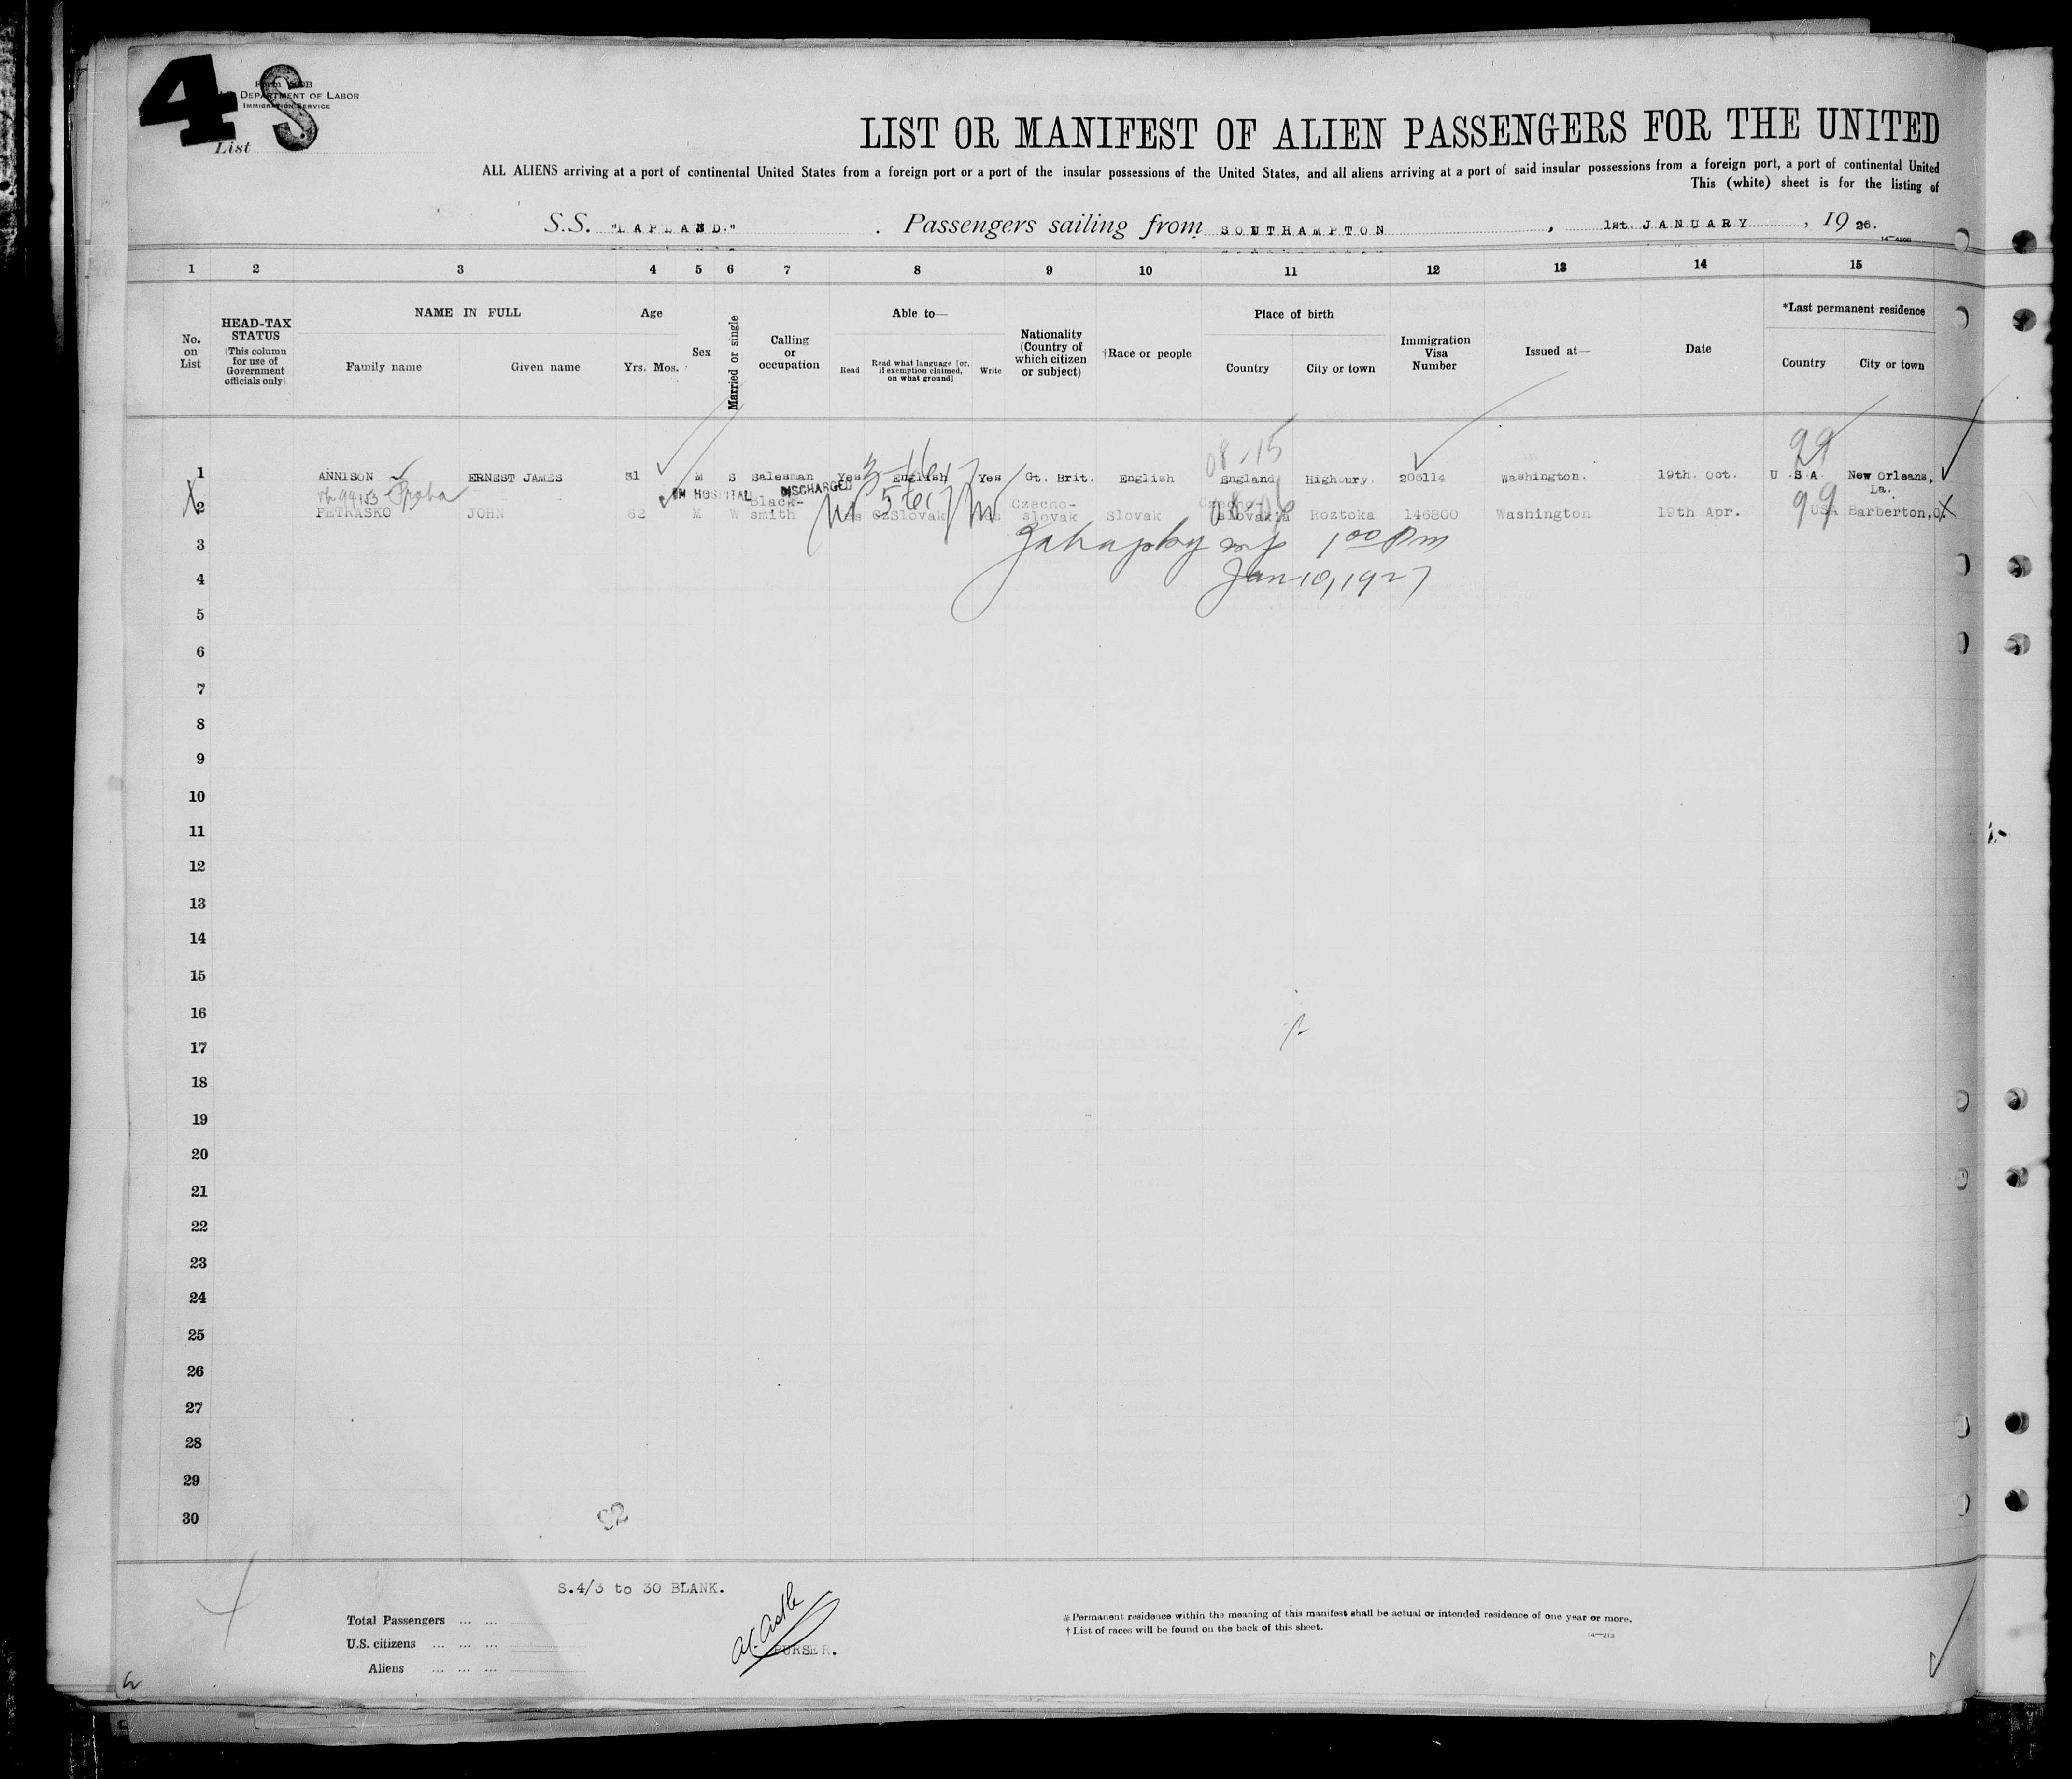 4 S
Form 500B
DEPARTMENT OF LABOR
IMMIGRATION SERVICE
List
LIST OR MANIFEST OF ALIEN PASSENGERS FOR THE UNITED
ALL ALIENS arriving at a port of continental United States from a foreign port or a port of the insular possessions of the United States, and all aliens arriving at a port of said insular possessions from a foreign port, a port of continental United
This (white) sheet is for the listing of
S.S. "LAPLAND." . Passengers sailing from SOUTHAMPTON , 1st. JANUARY , 19 26.
1 2 3 4 5 6 7 8 9 10 11 12 13 14 15
No. on List
HEAD-TAX STATUS (This column for use of Government officials only)
NAME IN FULL
Family name Given name
Age
Yrs. Mos.
Sex
Married or single
Calling or occupation
Able to—
Read Read what language [or, if exemption claimed, on what ground] Write
Nationality (Country of which citizen or subject)
†Race or people
Place of birth
Country City or town
Immigration Visa Number
Issued at—
Date
*Last permanent residence
Country City or town
08-15 99
1 ANNISON ERNEST JAMES 31 M S Salesman Yes English Yes Gt. Brit. English England Highbury. 206114 Washington. 19th. Oct. U.S.A. New Orleans, La.
IN HOSPITAL DISCHARGED
2 PETRASKO JOHN 62 M W Black-smith Yes CzSlovak Yes Czecho-slovak Slovak Czecho-slovakia Roztoka 146800 Washington 19th Apr. USA Barberton,O.
99
3 1 00 Pm
4 Jan 10, 1927
5
6
7
8
9
10
11
12
13
14
15
16
17
18
19
20
21
22
23
24
25
26
27
28
29
30
S.4/3 to 30 BLANK.
Total Passengers ... ...
U.S. citizens ... ... ...
Aliens ... ... ...
PURSER.
* Permanent residence within the meaning of this manifest shall be actual or intended residence of one year or more.
† List of races will be found on the back of this sheet.
14—213